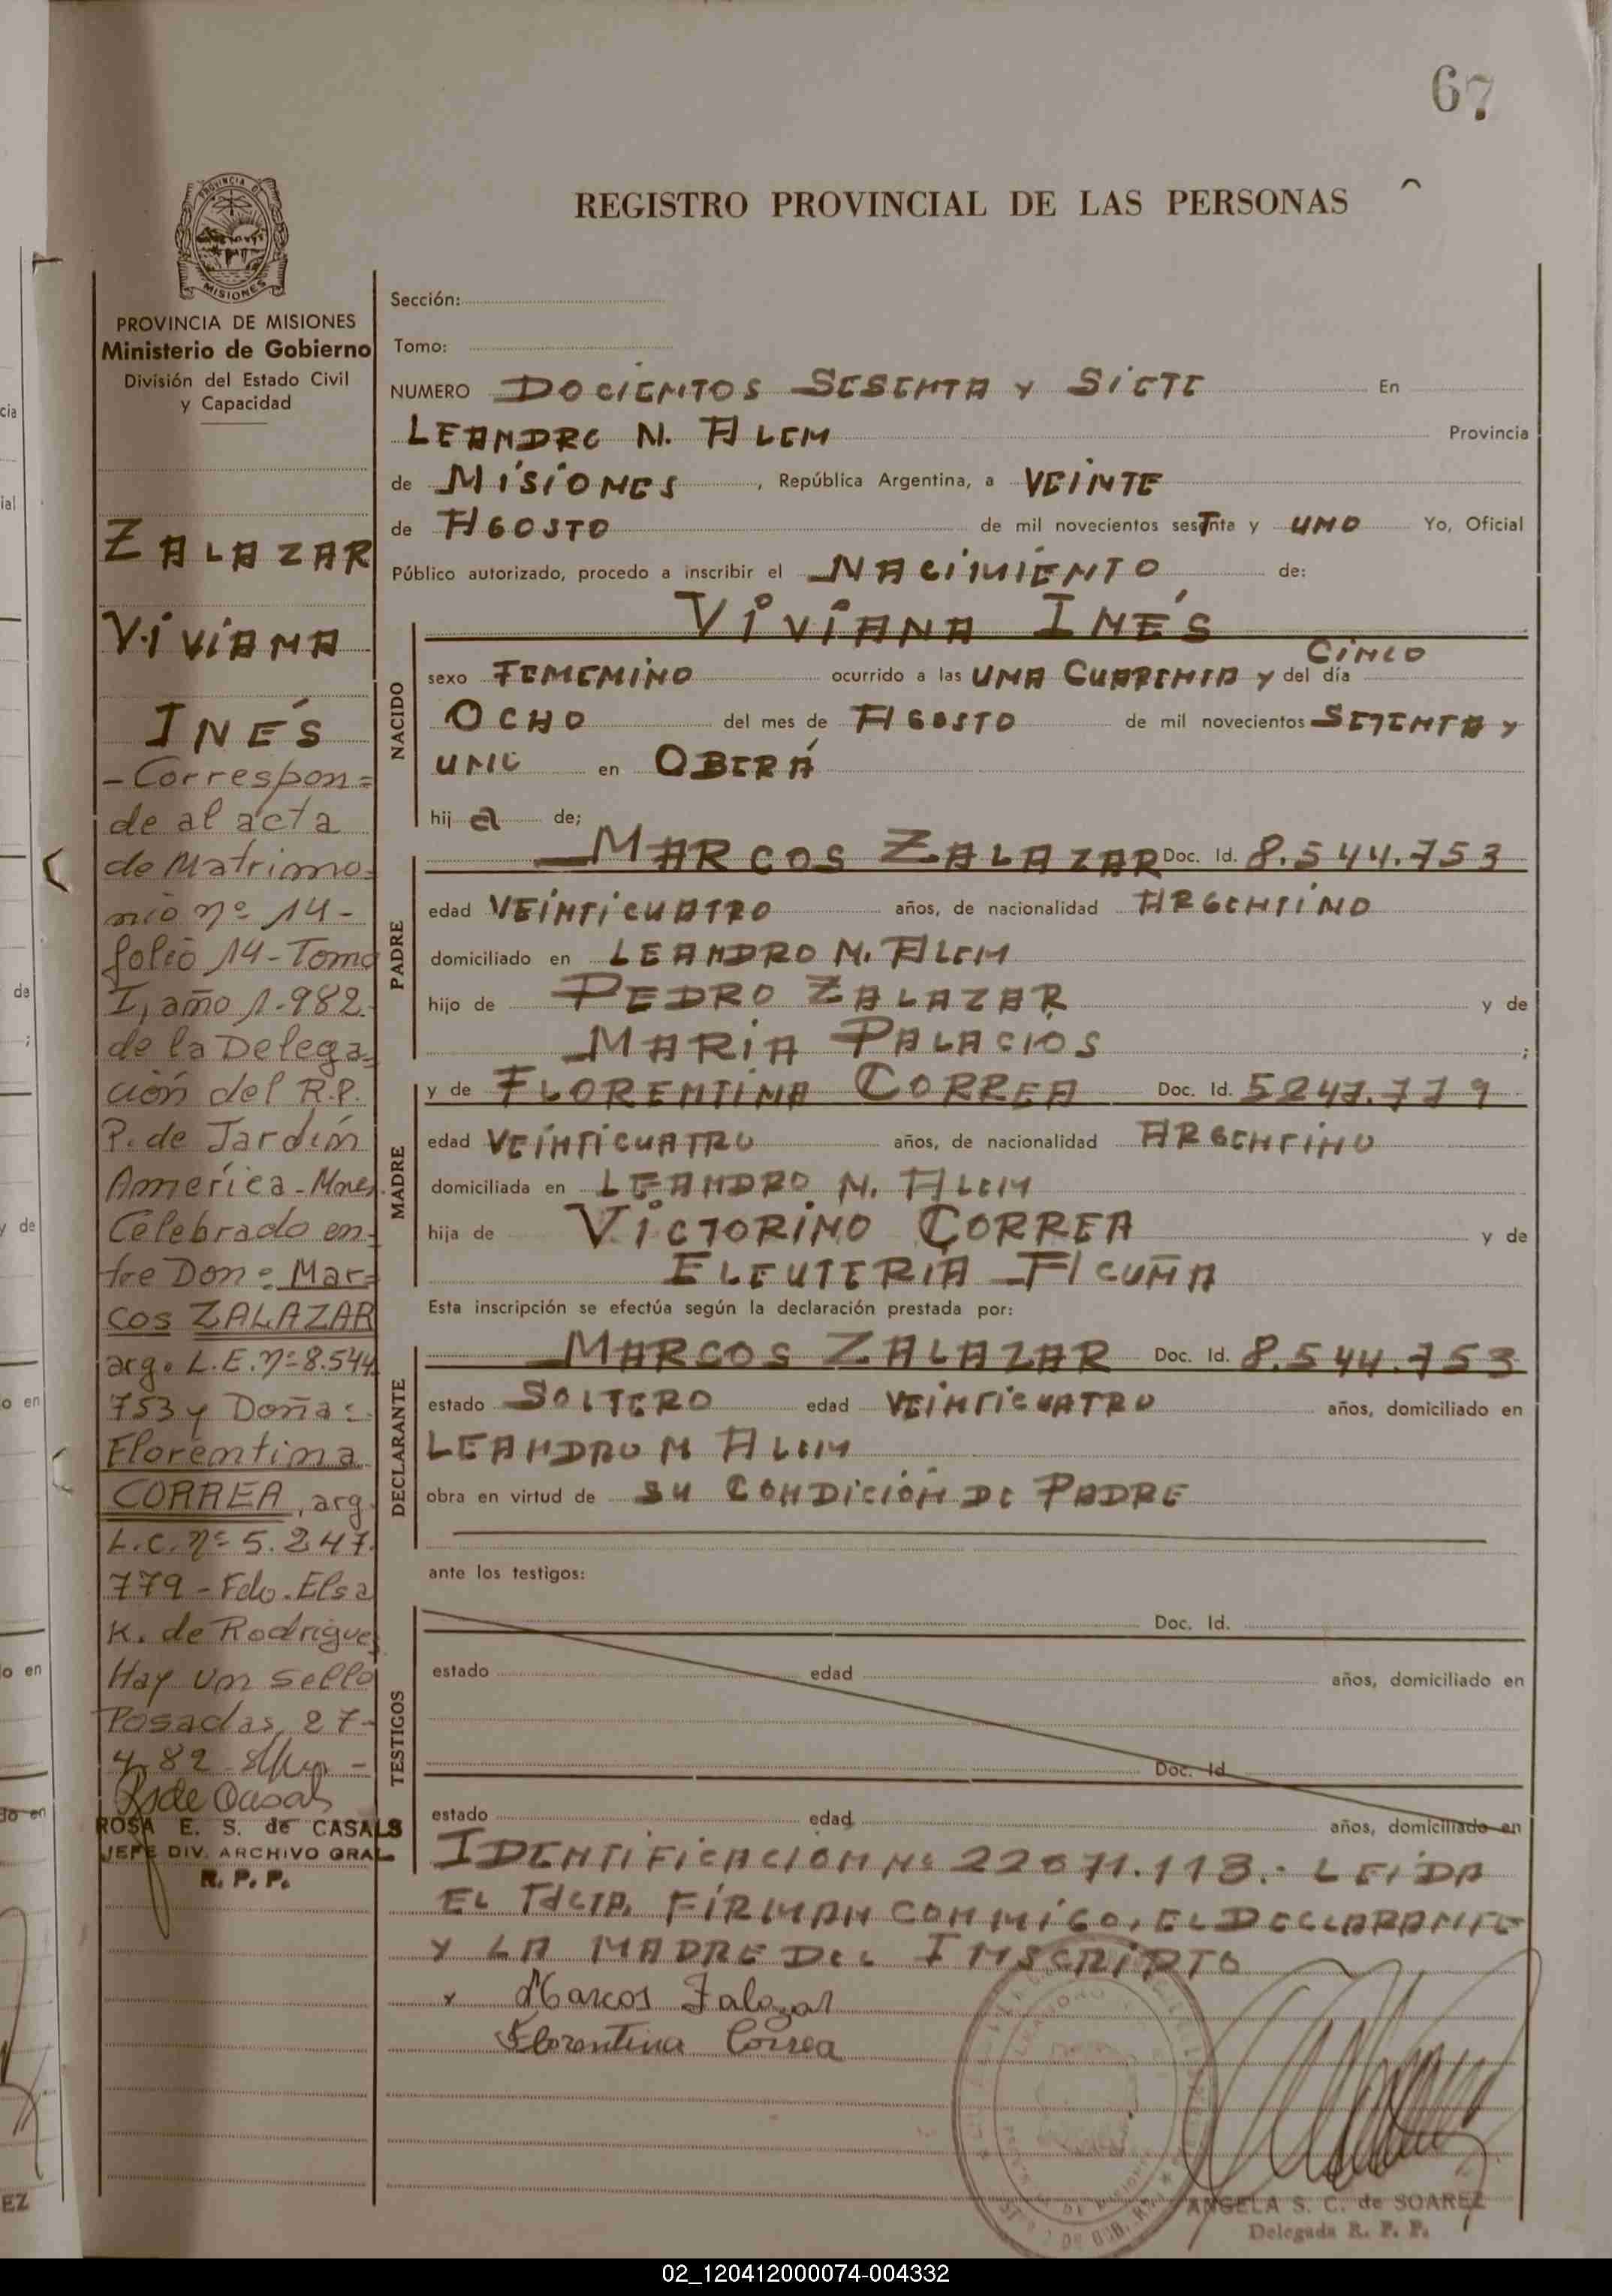 67
REGISTRO PROVINCIAL DE LAS PERSONAS
PROVINCIA DE MISIONES
PROVINCIA DE MISIONES
Ministerio de Gobierno
División del Estado Civil
y Capacidad
ZALAZAR
VIVIANA
INÉS
- Correspon=
de al acta
de Matrimo=
nio nº 14-
folio 14-Tomo
I, año 1.982.
de la Delega=
ción del R.P.
P. de Jardín
América - Mnes.
Celebrado en=
tre Don: Mar=
cos ZALAZAR
arg. L.E. nº 8.544.
753 y Doña:
Florentina
CORREA, arg.
L.C. nº 5.247.
779 - Fdo. Elsa
K. de Rodriguez
Hay un sello
Posadas, 27-
4-82
ROSA E. S. de CASALS
JEFE DIV. ARCHIVO GRAL
R. P. P.
Sección:
Tomo:
NUMERO DOCIENTOS SESENTA Y SIETE En
LEANDRO N. ALEM Provincia
de MISIONES, República Argentina, a VEINTE
de AGOSTO de mil novecientos sesTnta y UNO Yo, Oficial
Público autorizado, procedo a inscribir el NACIMIENTO de:
VIVIANA INÉS
NACIDO
sexo FEMENINO ocurrido a las UNA CUARENTA Y CINCO del día
OCHO del mes de AGOSTO de mil novecientos SETENTA Y
UNO en OBERÁ
hij a de;
PADRE
MARCOS ZALAZAR Doc. Id. 8.544.753
edad VEINTICUATRO años, de nacionalidad ARGENTINO
domiciliado en LEANDRO N. ALEM
hijo de PEDRO ZALAZAR y de
MARIA PALACIOS ;
MADRE
y de FLORENTINA CORREA Doc. Id. 5247.779
edad VEINTICUATRO años, de nacionalidad ARGENTINO
domiciliada en LEANDRO N. ALEM
hija de VICTORINO CORREA y de
ELEUTERIA ACUÑA
Esta inscripción se efectúa según la declaración prestada por:
DECLARANTE
MARCOS ZALAZAR Doc. Id. 8.544.753
estado SOLTERO edad VEINTICUATRO años, domiciliado en
LEANDRO N ALEM
obra en virtud de SU CONDICIÓN DE PADRE
ante los testigos:
TESTIGOS
Doc. Id.
estado edad años, domiciliado en
Doc. Id.
estado edad años, domiciliado en
IDENTIFICACION Nº 22071.113.- LEIDA
EL FIRMAN CONMIGO, EL DECLARANTE
Y LA MADRE DEL INSCRIPTO
x Marcos Zalazar
Florentina Correa
ANGELA S. C. de SOAREZ
Delegada R. P. P.
02_120412000074-004332